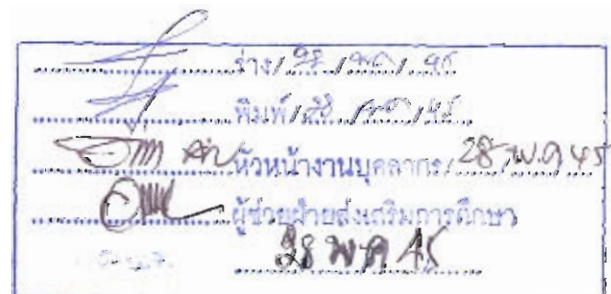 ร่าง/28/พค/45
พิมพ์/28/พค/45
หัวหน้างานบุคลากร/28/พ.ค/45
ผู้ช่วยฝ่ายส่งเสริมการศึกษา
28 พค 45